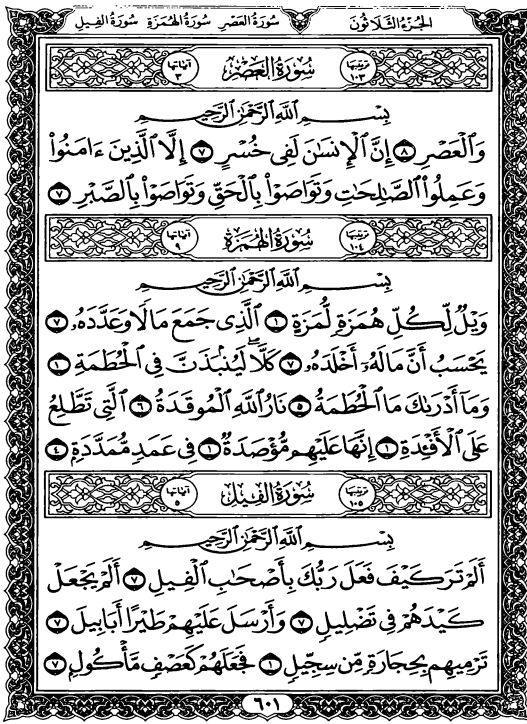 الجزء الثلاثون سورة العصر سورة الهمزة سورة الفيل
ترتيبها ١٠٣ سورة العصر آياتها ٣
بِسْمِ ٱللَّهِ ٱلرَّحْمَٰنِ ٱلرَّحِيمِ
وَٱلْعَصْرِ ٨ إِنَّ ٱلْإِنسَٰنَ لَفِى خُسْرٍ ٧ إِلَّا ٱلَّذِينَ ءَامَنُوا۟
وَعَمِلُوا۟ ٱلصَّٰلِحَٰتِ وَتَوَاصَوْا۟ بِٱلْحَقِّ وَتَوَاصَوْا۟ بِٱلصَّبْرِ ٧
ترتيبها ١٠٤ سورة الهمزة آياتها ٩
بِسْمِ ٱللَّهِ ٱلرَّحْمَٰنِ ٱلرَّحِيمِ
وَيْلٌ لِّكُلِّ هُمَزَةٍ لُّمَزَةٍ ١ ٱلَّذِى جَمَعَ مَالًا وَعَدَّدَهُۥ ٧
يَحْسَبُ أَنَّ مَالَهُۥٓ أَخْلَدَهُۥ ٧ كَلَّا ۖ لَيُنۢبَذَنَّ فِى ٱلْحُطَمَةِ ١
وَمَآ أَدْرَىٰكَ مَا ٱلْحُطَمَةُ ٥ نَارُ ٱللَّهِ ٱلْمُوقَدَةُ ٦ ٱلَّتِى تَطَّلِعُ
عَلَى ٱلْأَفْـِٔدَةِ ١ إِنَّهَا عَلَيْهِم مُّؤْصَدَةٌ ١ فِى عَمَدٍ مُّمَدَّدَةٍۭ ٤
ترتيبها ١٠٥ سورة الفيل آياتها ٥
بِسْمِ ٱللَّهِ ٱلرَّحْمَٰنِ ٱلرَّحِيمِ
أَلَمْ تَرَ كَيْفَ فَعَلَ رَبُّكَ بِأَصْحَٰبِ ٱلْفِيلِ ٧ أَلَمْ يَجْعَلْ
كَيْدَهُمْ فِى تَضْلِيلٍ ٧ وَأَرْسَلَ عَلَيْهِمْ طَيْرًا أَبَابِيلَ ٧
تَرْمِيهِم بِحِجَارَةٍ مِّن سِجِّيلٍ ١ فَجَعَلَهُمْ كَعَصْفٍ مَّأْكُولٍۭ ٧
٦٠١